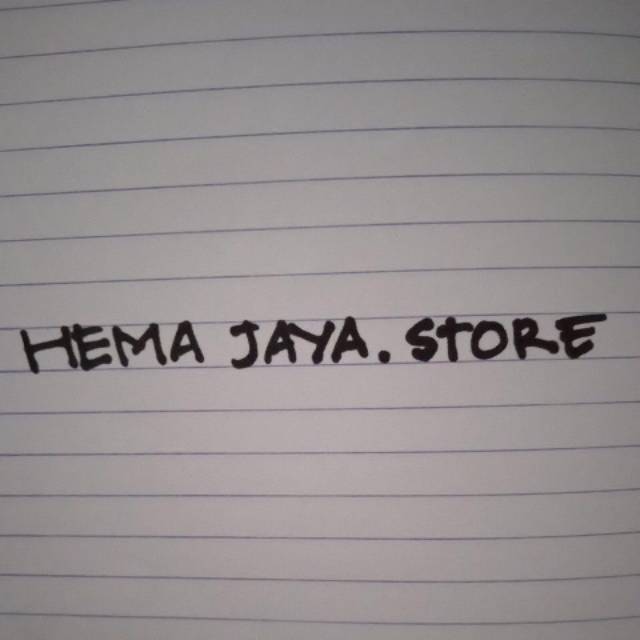 HEMA JAYA. STORE